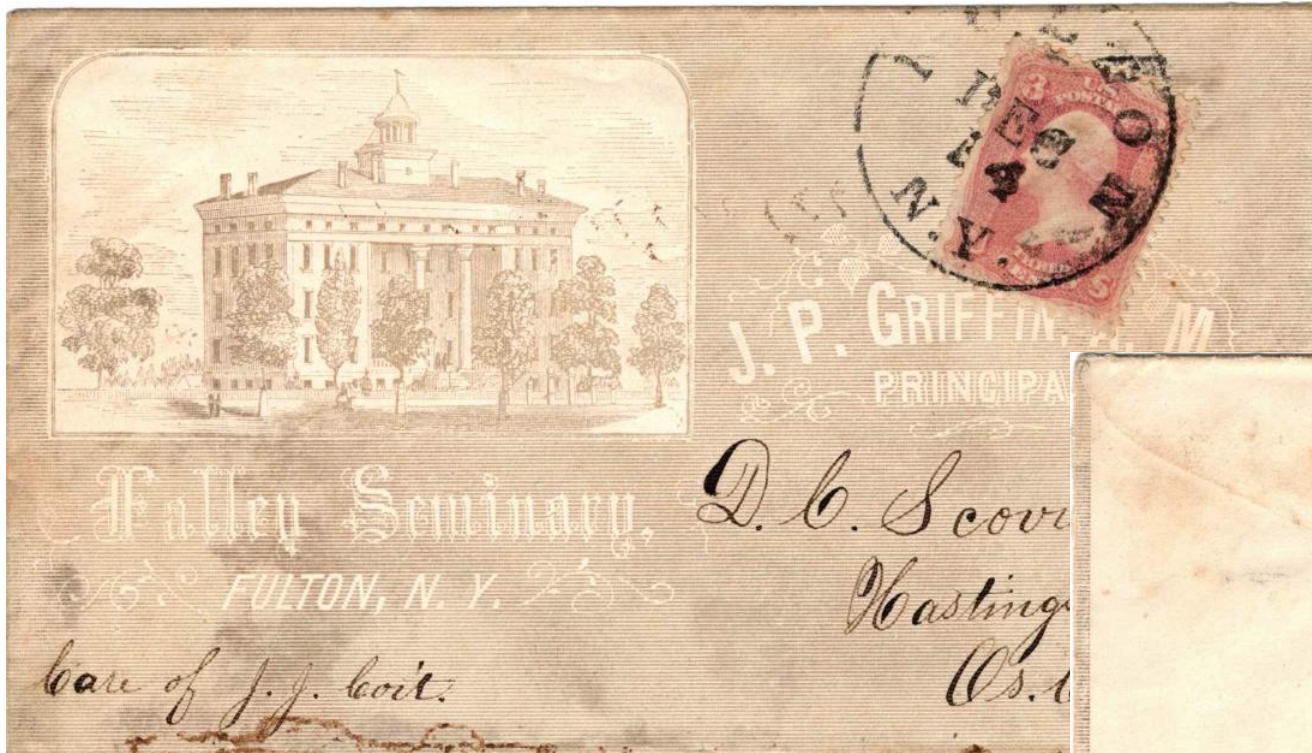 FULTON
N.Y.
3
U.S.
POSTA
J. P. GRIFFIN, A. M
PRINCIPA
Falley Seminary,
FULTON, N. Y.
D. C. Scovi
Hastings
Os. C
Care of J. J. Coit.